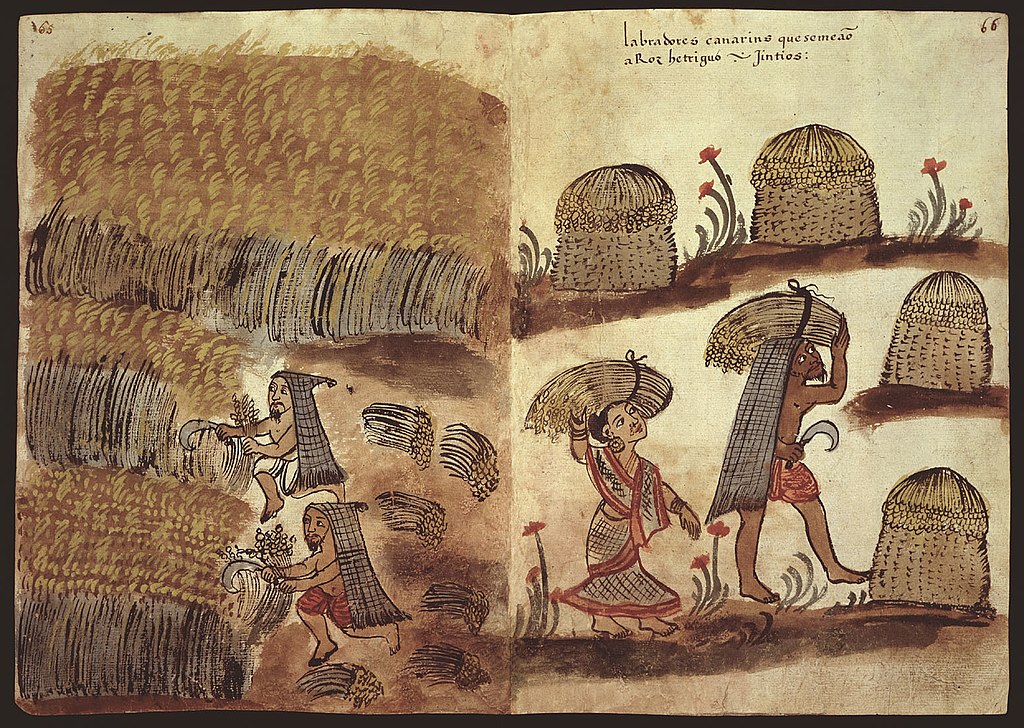 65
66
labradores canarins que semeaõ
a Roz hetriguo ~ Jintios: